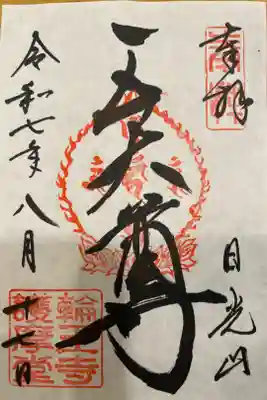 奉拝
日光山
五大尊
令和七年八月
十七日
輪王寺
護摩堂